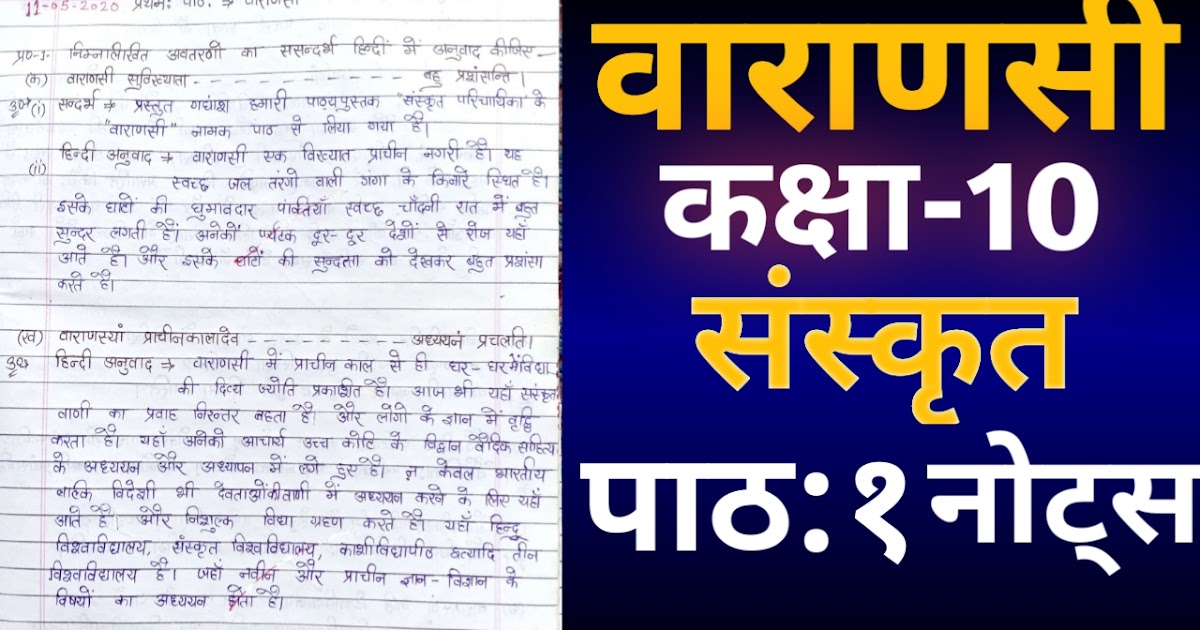 11-05-2020 प्रथम: पाठ: ⇒ वाराणसी
प्र०-1- निम्नलिखित अवतरणों का ससन्दर्भ हिन्दी में अनुवाद कीजिए -
(क) वाराणसी सुविख्याता - - - - - - - - - - - - बहु प्रशंसन्ति।
उ०(i) सन्दर्भ ⇒ प्रस्तुत गद्यांश हमारी पाठ्यपुस्तक "संस्कृत परिचायिका के
"वाराणसी" नामक पाठ से लिया गया है।
(ii) हिन्दी अनुवाद ⇒ वाराणसी एक विख्यात प्राचीन नगरी है। यह
स्वच्छ जल तरंगो वाली गंगा के किनारे स्थित है।
इसके घाटों की घुमावदार पंक्तियाँ स्वच्छ चाँदनी रात में बहुत
सुन्दर लगती हैं। अनेकों पर्यटक दूर-दूर देशों से रोज यहाँ
आते है। और इसके घाटों की सुन्दरता को देखकर बहुत प्रशंसा
करते है।
(ख) वाराणस्यां प्राचीनकालादेव - - - - - - - - - अध्ययनं प्रचलति।
उ० हिन्दी अनुवाद ⇒ वाराणसी में प्राचीन काल से ही घर-घर में विद्या
की दिव्य ज्योति प्रकाशित है। आज भी यहाँ संस्कृत
वाणी का प्रवाह निरन्तर बहता है। और लोगो के ज्ञान में वृद्धि
करता है। यहाँ अनेको आचार्य उच्च कोटि के विद्वान वैदिक साहित्य
के अध्ययन और अध्यापन में लगे हुए है। न केवल भारतीय
बल्कि विदेशी भी देवताओं की वाणी में अध्ययन करने के लिए यहाँ
आते है। और निशुल्क विद्या ग्रहण करते है। यहाँ हिन्दु
विश्वविद्यालय, संस्कृत विश्वविद्यालय, काशी विद्यापीठ इत्यादि तीन
विश्वविद्यालय है। जहाँ नवीन और प्राचीन ज्ञान-विज्ञान के
विषयों का अध्ययन होता है।
वाराणसी
कक्षा-10
संस्कृत
पाठ:१ नोट्स